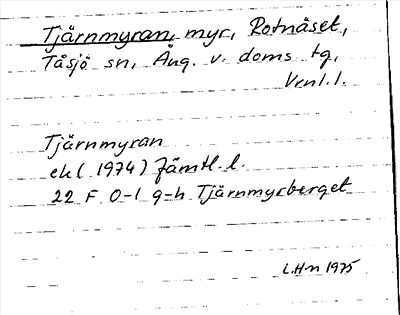 Tjärnmyran, myr, Rotnäset,
Tåsjö sn, Ång. v. doms tg,
Vrnl.l.
Tjärnmyran
ek (1974) Jämtl. l.
22 F 0-1 g-h Tjärnmyrberget
L.H-n 1975